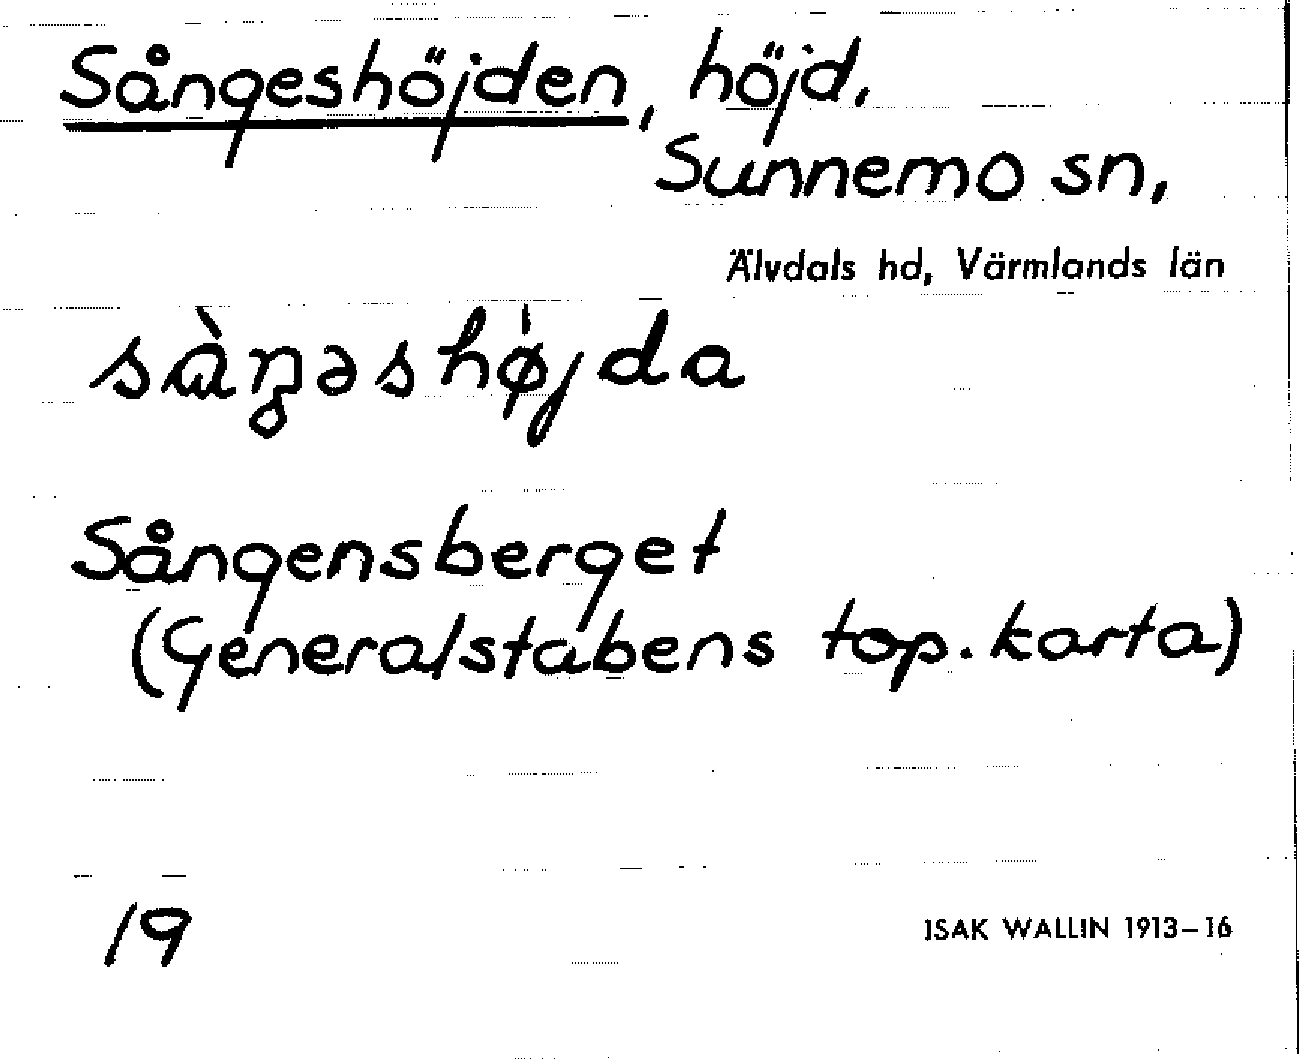 Sångeshöjden, höjd,
Sunnemo sn,
Älvdals hd, Värmlands län
sàŋəshø̍jda
Sångensberget
(Generalstabens top. karta)
19
ISAK WALLIN 1913–16